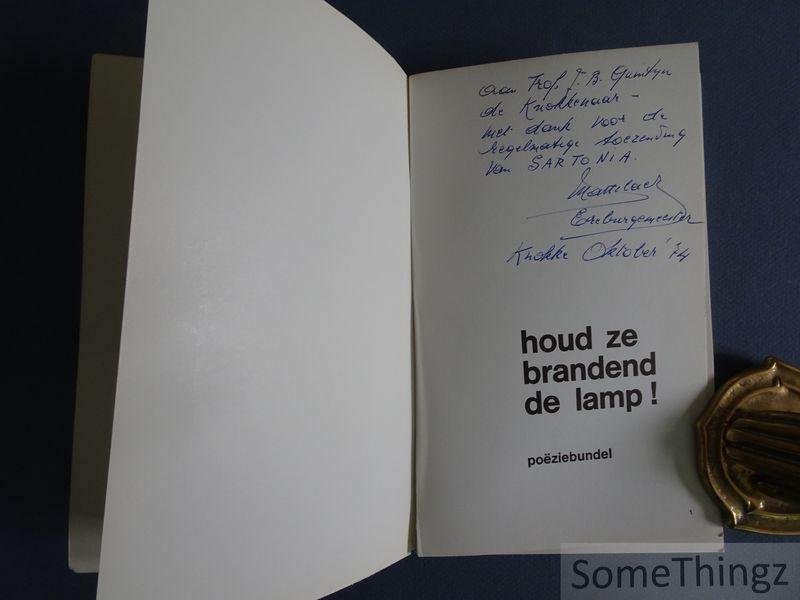 aan Prof. J. B.
de Knokkenaar –
met dank voor de
regelmatige toezending
van SARTONIA.
Ereburgemeester
Knokke Oktober '74
houd ze
brandend
de lamp !
poëziebundel
1
SomeThingz